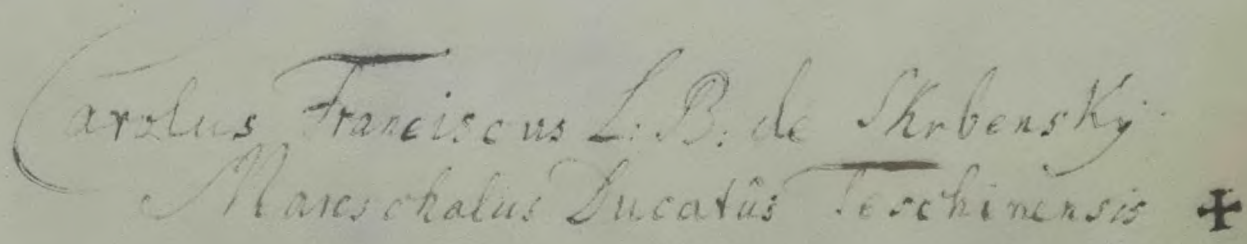 Carolus Franciscus L: B: de Skrbensky
Mareschalus Ducatûs Teschinensis ✠